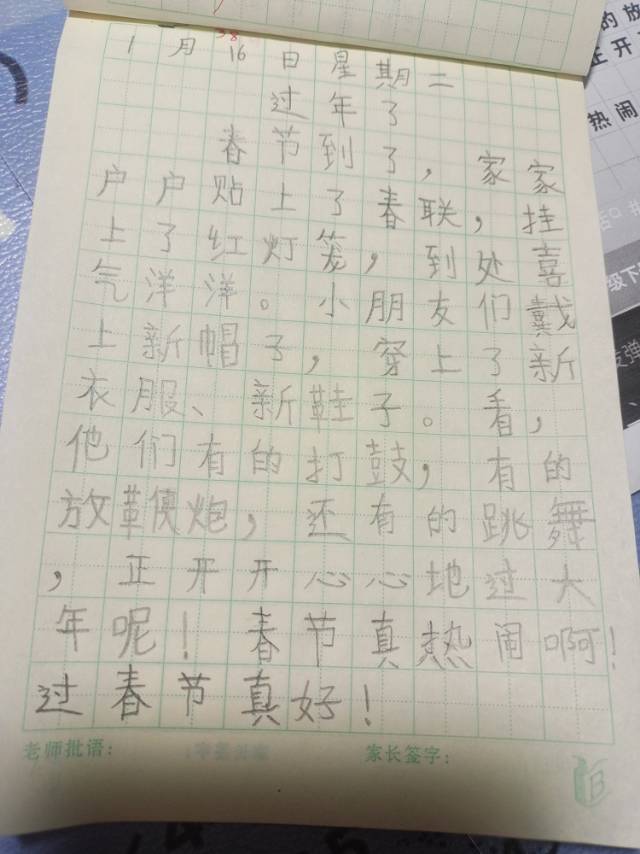 38
1月16日星期二
过年了
春节到了，家家
户户贴上了春联，挂
上了红灯笼，到处喜
气洋洋。小朋友们戴
上新帽子，穿上了新
衣服、新鞋子。看，
他们有的打鼓，有的
放鞭炮，还有的跳舞
，正开开心心地过大
年呢！春节真热闹啊！
过春节真好！
老师批语：
家长签字：
的放
正开
热闹
级下